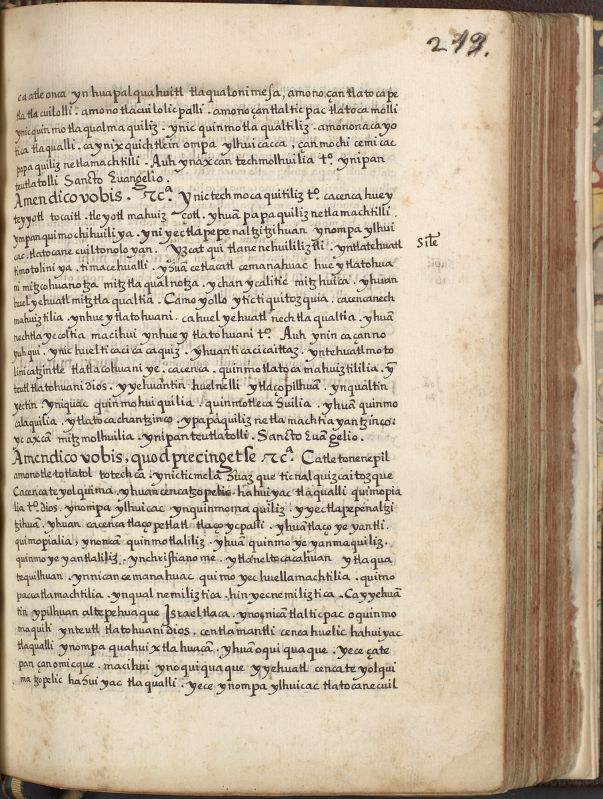 249.
ca atle onca yn huapalquahuitl tlaqualoni mesa, amono çan tlatocape
tlatlacuilolli. amono tlacuilolicpalli. amono çan tlalticpac tlatocamolli
ynic quinmotlaqualmaquiliz. ynic quinmotlaqualtiliz. amono nacayo
tica tlaqualli. ca yn ixquich tlein ompa ylhuicac ca, can mochi cemicac
papaquiliznetlamachtilli. Auh yn axcan techmolhuilia tº. yn ipan
teutlatolli Sancto Euangelio.
Amen dico vobis. &c.ª Ynic techmocaquitiliz tº. cacenca huey
teyyotl tocaitl. tleyotl mahuizçotl. yhuã papaquiliznetlamachtilli.
ympan quimochihuiliya. yn iyectlapepenaltzitzihuan ynompa ylhui
cac. tlatocanecuiltonoloyan. Yzcatqui tlanenehuililiztli. yntlatehuatl Sile
timotolinïya. timacehualli. yhuã cetlacatl cemanahuac huey tlatohua
ni mitzmohuanotza mitztlaqualnotza. ychan ycalitic mitzhuica. yhuan
huel yehuatl mitztlaqualtia. Camo yollo ytic tiquitozquia. cacenca nech
mahuiztilia ynhuey tlatohuani. ca huel yehuatl nechtlaqualtia. yhuã
nechtlaycoltia macihui ynhuey tlatohuani tº. Auh ynin ca çanno
yuhqui. ynic huel ticacicacaquiz. yhuan ticacicaittaz. yn tehuatl moto
linicatzintle tlatlacohuani ye. cacenca. quinmotlatocamahuiztililia. yn
teutl tlatohuani dios. yyehuantin huelnelli ytlaçopilhuã. ynqualtin
yectin. yniquac quinmohuiquilia. quinmotlecahuilia. yhuã quinmo
calaquilia. ytlatocachantzinco. ypapaquiliznetlamachtiayantzinco:
yc axcã mitzmolhuilia. ynipan teutlatolli. Sancto Euãgelio.
Amen dico vobis, quod precinget se &c.ª Catle tonenepil
amono tle totlatol totech ca. ynic ticmelahuazque ticnalquizcaitozque
Cacencateyolquima. yhuan cencatzopelic hahuiyac tlaqualli quimopia
lia tº. dios. ynompa ylhuicac ynquinmomaquiliz. yyectlapepenaltzi
tzihuã. yhuan cacenca tlaçopetlatl tlaçoycpalli. yhuã tlaço yeyantli.
quimopialia, ynoncã quinmotlaliliz. yhuã quinmoyeyanmaquiliz.
quinmoyeyantlaliliz. ynchristianome. ytlaneltocacahuan ytlaqua
tequilhuan. ynnican cemanahuac quimoyechuellamachtilia. quimo
paccatlamachtilia. ynqualnemiliztica. hin yecnemiliztica. Ca yyehuã
tin ypilhuan altepehuaque Israel tlaca. ynocnicã tlalticpac oquinmo
maquili ynteutl tlatohuani dios. centlamantli cenca huelic hahuiyac
tlaqualli ynompa quahuixtlahuacã. yhuã oquiquaque. yece çate
pan çan omicque. macihui ynoquiquaque yyehuatl cencateyolqui
ma tzopelic hahuiyac tlaqualli. yece ynompa ylhuicac tlatocanecuil